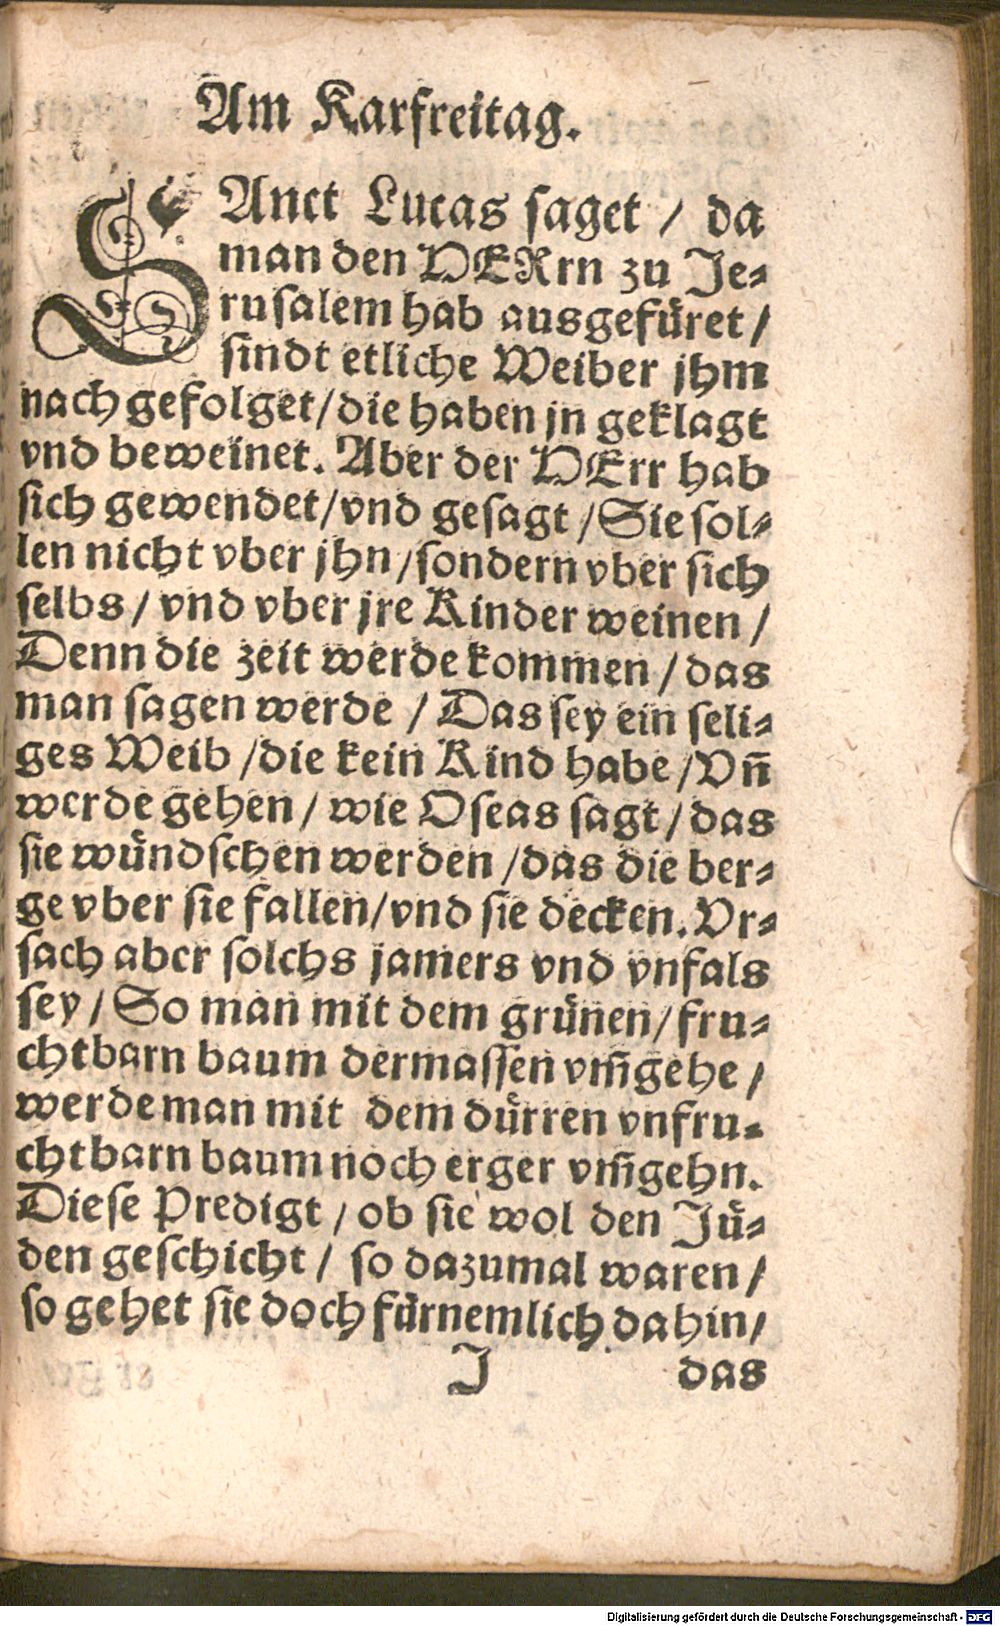 Am Karfreitag.
SAnct Lucas saget / da
man den HERrn zu Je-
rusalem hab ausgefüret /
sindt etliche Weiber jhm
nach gefolget / die haben jn geklagt
vnd beweinet. Aber der HErr hab
sich gewendet / vnd gesagt / Sie sol-
len nicht vber jhn / sondern vber sich
selbs / vnd vber jre Kinder weinen /
Denn die zeit werde kommen / das
man sagen werde / Das sey ein seli-
ges Weib / die kein Kind habe / Vñ
werde gehen / wie Oseas sagt / das
sie wündschen werden / das die ber-
ge vber sie fallen / vnd sie decken. Vr-
sach aber solchs jamers vnd vnfals
sey / So man mit dem grünen / fru-
chtbarn baum dermassen vm̃gehe /
werde man mit dem dürren vnfru-
chtbarn baum noch erger vm̃gehn.
Diese Predigt / ob sie wol den Jü-
den geschicht / so dazumal waren /
so gehet sie doch fürnemlich dahin /
J das
Digitalisierung gefördert durch die Deutsche Forschungsgemeinschaft - DFG